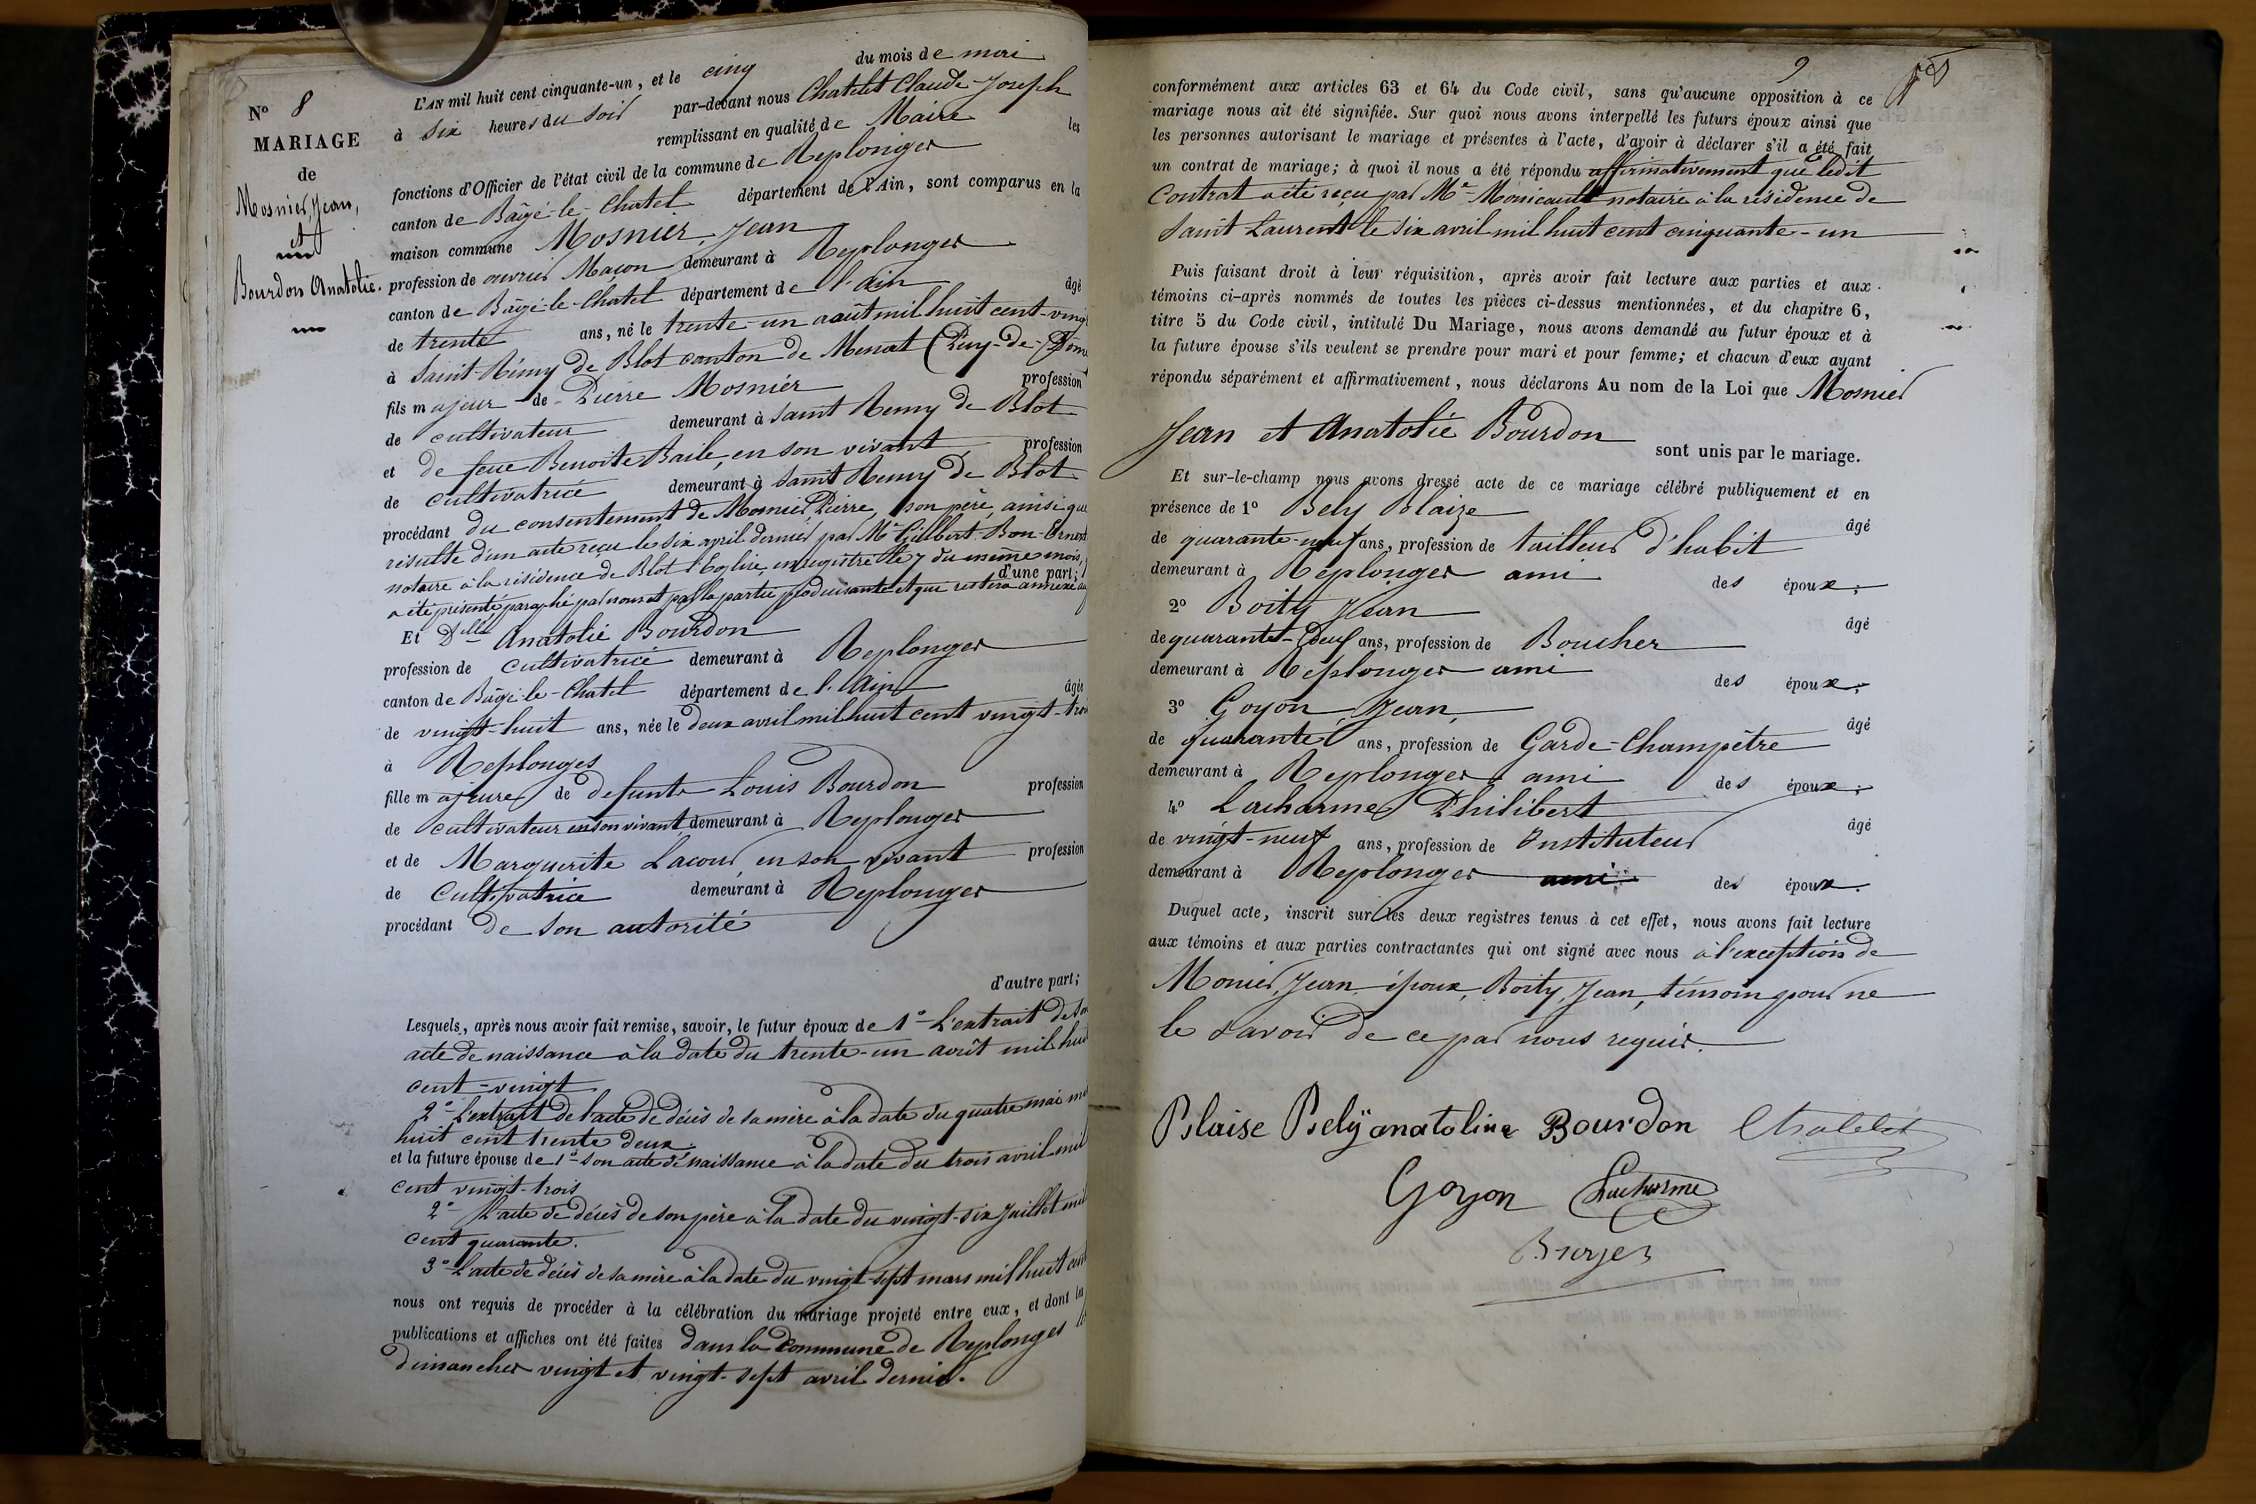 N° 8
MARIAGE
de
Mosnier, Jean,
et
Bourdon Anatolie.
L'AN mil huit cent cinquante-un, et le cinq du mois de mai
à six heures du soir par-devant nous Chatelet Claude-Joseph
remplissant en qualité de Maire les
fonctions d'Officier de l'état civil de la commune de Replonges
canton de Bâgé-le-Chatel département de l'Ain, sont comparus en la
maison commune Mosnier, Jean
profession de ouvrier Maçon demeurant à Replonges
canton de Bâgé-le-Chatel département de l'Ain âgé
de trente ans, né le trente-un août mil huit cent-vingt
à Saint-Rémy de Blot canton de Menat (Puy-de-Dôme
fils majeur de Pierre Mosnier profession
de cultivateur demeurant à Saint Remy de Blot
et de feue Benoite Baile, en son vivant profession
de cultivatrice demeurant à Saint Remy de Blot
procédant du consentement de Mosnier Pierre, son père, ainsi que
résulte d'un acte reçu le six april dernier par Me Gilbert-Bon-Ernest
notaire à la résidence de Blot l'Eglise, enregistré le 7 du même mois,
d'une part;
a été présenté paraphé par nous et par la partie produisante et qui restera annexé au
Et Delle Anatolie Bourdon
profession de cultivatrice demeurant à Replonges
canton de Bâgé-le-Chatel département de l'Ain âgée
de vingt-huit ans, née le deux avril mil huit cent vingt-trois
à Replonges
fille majeure de defunts Louis Bourdon profession
de cultivateur en son vivant demeurant à Replonges
et de Marguerite Lacour, en son vivant profession
de Cultivatrice demeurant à Replonges
procédant de son autorité
d'autre part;
Lesquels, après nous avoir fait remise, savoir, le futur époux de 1° L'extrait de son
acte de naissance à la date du trente-un août mil huit
cent-vingt
2° L'extrait de l'acte de décès de sa mère à la date du quatre mai mil
huit cent trente deux.
et la future épouse de 1° son acte de naissance à la date du trois avril mil
cent vingt-trois
2° L'acte de décès de son père à la date du vingt-six Juillet mil
cent quarante.
3° L'acte de décès de sa mère à la date du vingt-sept mars mil huit cent
nous ont requis de procéder à la célébration du mariage projeté entre eux, et dont les
publications et affiches ont été faites dans la commune de Replonges les
dimanches vingt et vingt-sept avril dernier.
9
conformément aux articles 63 et 64 du Code civil, sans qu'aucune opposition à ce
mariage nous ait été signifiée. Sur quoi nous avons interpellé les futurs époux ainsi que
les personnes autorisant le mariage et présentes à l'acte, d'avoir à déclarer s'il a été fait
un contrat de mariage; à quoi il nous a été répondu affirmativement que ledit
Contrat a été reçu par Me Monicault notaire à la résidence de
Saint Laurent le six avril mil huit cent cinquante-un
Puis faisant droit à leur réquisition, après avoir fait lecture aux parties et aux
témoins ci-après nommés de toutes les pièces ci-dessus mentionnées, et du chapitre 6,
titre 5 du Code civil, intitulé Du Mariage, nous avons demandé au futur époux et à
la future épouse s'ils veulent se prendre pour mari et pour femme; et chacun d'eux ayant
répondu séparément et affirmativement, nous déclarons Au nom de la Loi que Mosnier
Jean et Anatolie Bourdon sont unis par le mariage.
Et sur-le-champ nous avons dressé acte de ce mariage célébré publiquement et en
présence de 1° Bely Blaize âgé
de quarante-neuf ans, profession de tailleur d'habit
demeurant à Replonges ami des époux;
2° Boity Jean âgé
de quarante-deux ans, profession de Boucher
demeurant à Replonges ami des époux;
3° Goyon, Jean, âgé
de quarante ans, profession de Garde-Champêtre
demeurant à Replonges ami des époux;
4° Lacharme Philibert âgé
de vingt-neuf ans, profession de Instituteur
demeurant à Replonges ami des époux.
Duquel acte, inscrit sur les deux registres tenus à cet effet, nous avons fait lecture
aux témoins et aux parties contractantes qui ont signé avec nous à l'exception de
Monier, Jean époux, Boity, Jean, témoin pour ne
le savoir de ce par nous requis.
Blaise Bely anatoline Bourdon Chatelet
Goyon Lacharme